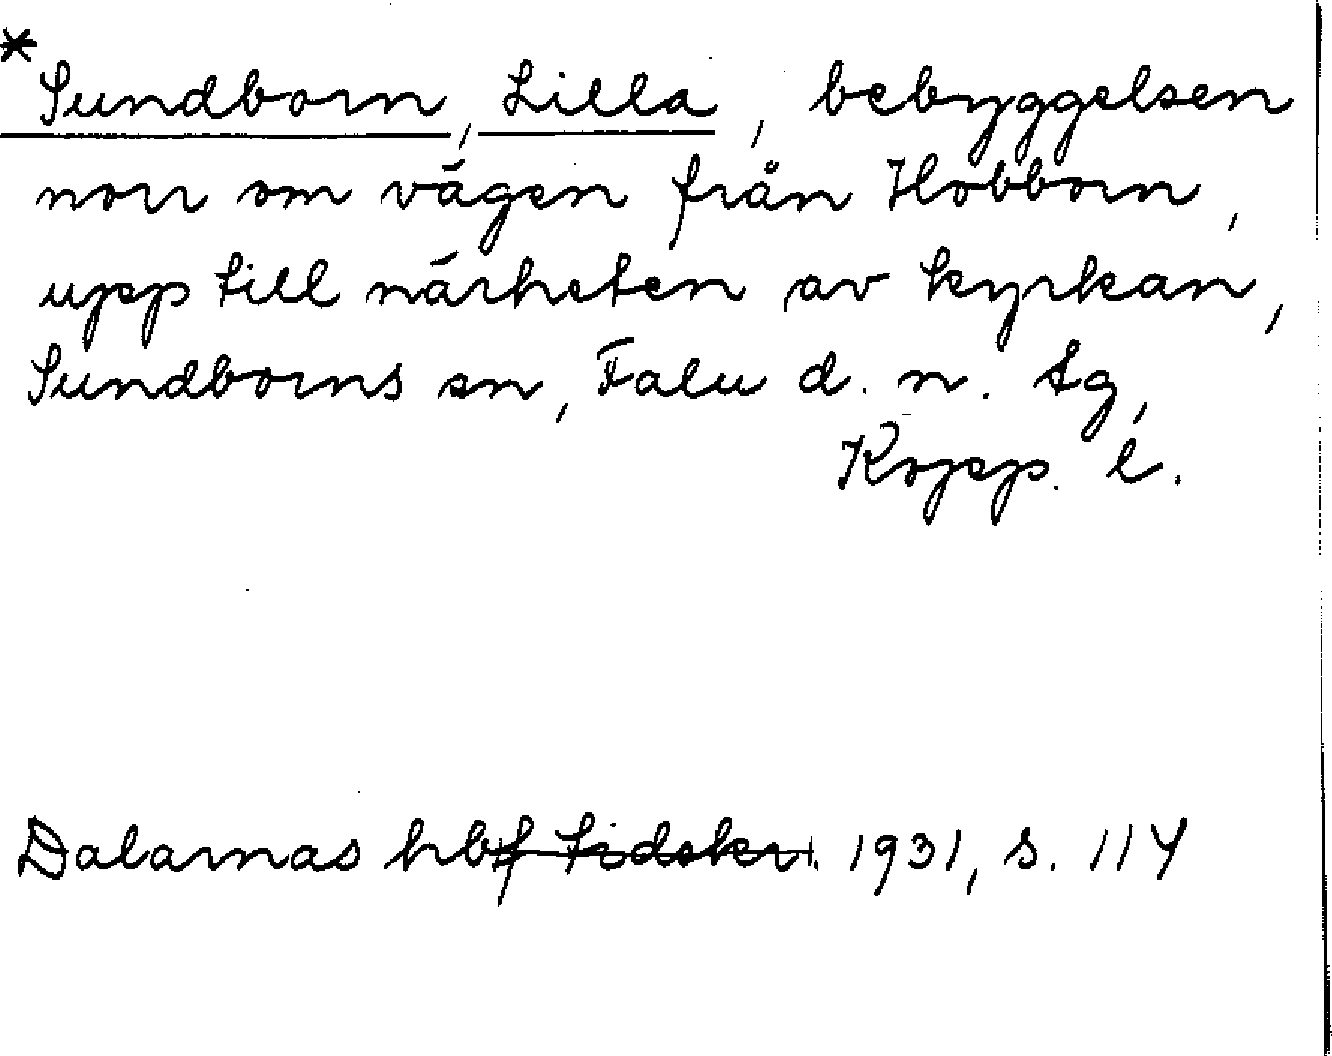 *Sundborn, Lilla, bebyggelsen
norr om vägen från Hobborn,
upp till närheten av kyrkan,
Sundborns sn, Falu d. n. tg,
Kopp. l.
Dalarnas hbf tidskr. 1931, s. 114